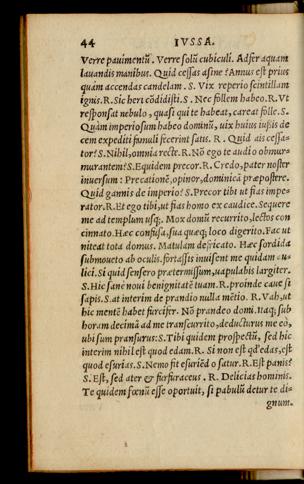 44 IVSSA.
Verre pauimentū. Verre solū cubiculi. Adfer aquam
lauandis manibus. Quid cessas asine? Annus est prius
quàm accendas candelam. S. Vix reperio scintillam
ignis. R. Sic heri cōdidisti. S. Nec follem habeo. R. Vt
responsat nebulo, quasi qui te habeat, careat folle. S.
Quàm imperiosum habeo dominū, vix huius iussis de
cem expediti famuli fecerint satis. R. Quid ais cessa-
tor? S. Nihil, omnia rectè. R. Nō ego te audio obmur
murantem? S. Equidem precor. R. Credo, pater noster
inuersum: Precationē, opinor, dominicā præpostere.
Quid gannis de imperio? S. Precor tibi ut fias impe-
rator. R. Et ego tibi, ut fias homo ex caudice. Sequere
me ad templum usq;. Mox domū recurrito, lectos con
cinnato. Hæc confusa, sua quæq; loco digerito. Fac ut
niteat tota domus. Matulam defricato. Hæc sordida
submoueto ab oculis. fortassis inuisent me quidam au
lici. Si quid sensero prætermissum, uapulabis largiter.
S. Hic sane noui benignitatē tuam. R. proinde caue si
sapis. S. at interim de prandio nulla mētio. R. Vah, ut
hic mentē habet furcifer. Nō prandeo domi. Itaq; sub
horam decimā ad me transcurrito, deducturus me eò,
ubi sum pransurus. S. Tibi quidem prospectū, sed hic
interim nihil est quod edam. R. Si non est qd' edas, est
quod esurias. S. Nemo fit esuriēdo satur. R. Est panis.
S. Est, sed ater & furfuraceus. R. Delicias hominis.
Te quidem fœnū esse oportuit, si pabulū detur te di-
gnum.